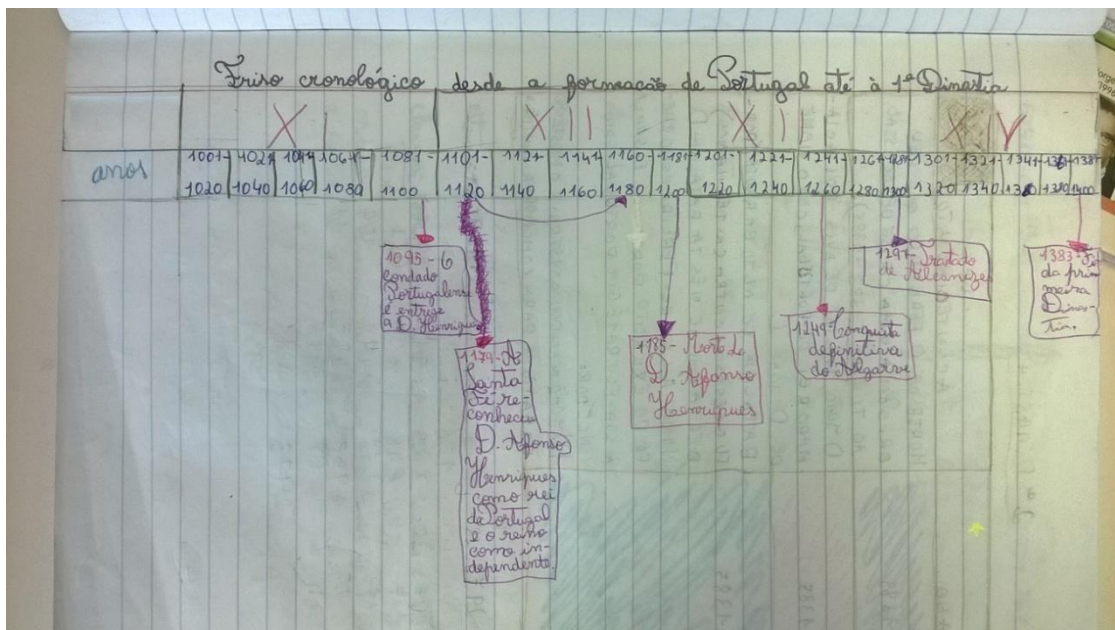 Friso cronológico desde a formação de Portugal até à 1ª Dinastia
XI XII XIII XIV
anos
1001- 1021- 1041- 1061- 1081- 1101- 1121- 1141- 1160- 1181- 1201- 1221- 1241- 1261- 1281- 1301- 1321- 1341- 1361- 1381-
1020 1040 1060 1080 1100 1120 1140 1160 1180 1200 1220 1240 1260 1280 1300 1320 1340 1360 1380 1400
1095- O
condado
Portugalense
é entrege
a D. Henrique
1179- A
Santa
Fé re-
conheceu
D. Afonso
Henriques
como rei
de Portugal
e o reino
como in-
dependente.
1185- Morte de
D. Afonso
Henriques
1249- Conquista
definitiva
do Algarve
1297- Tratado
de Alcanizes
1383- Fi
da pri
meira
Dinas-
tia.